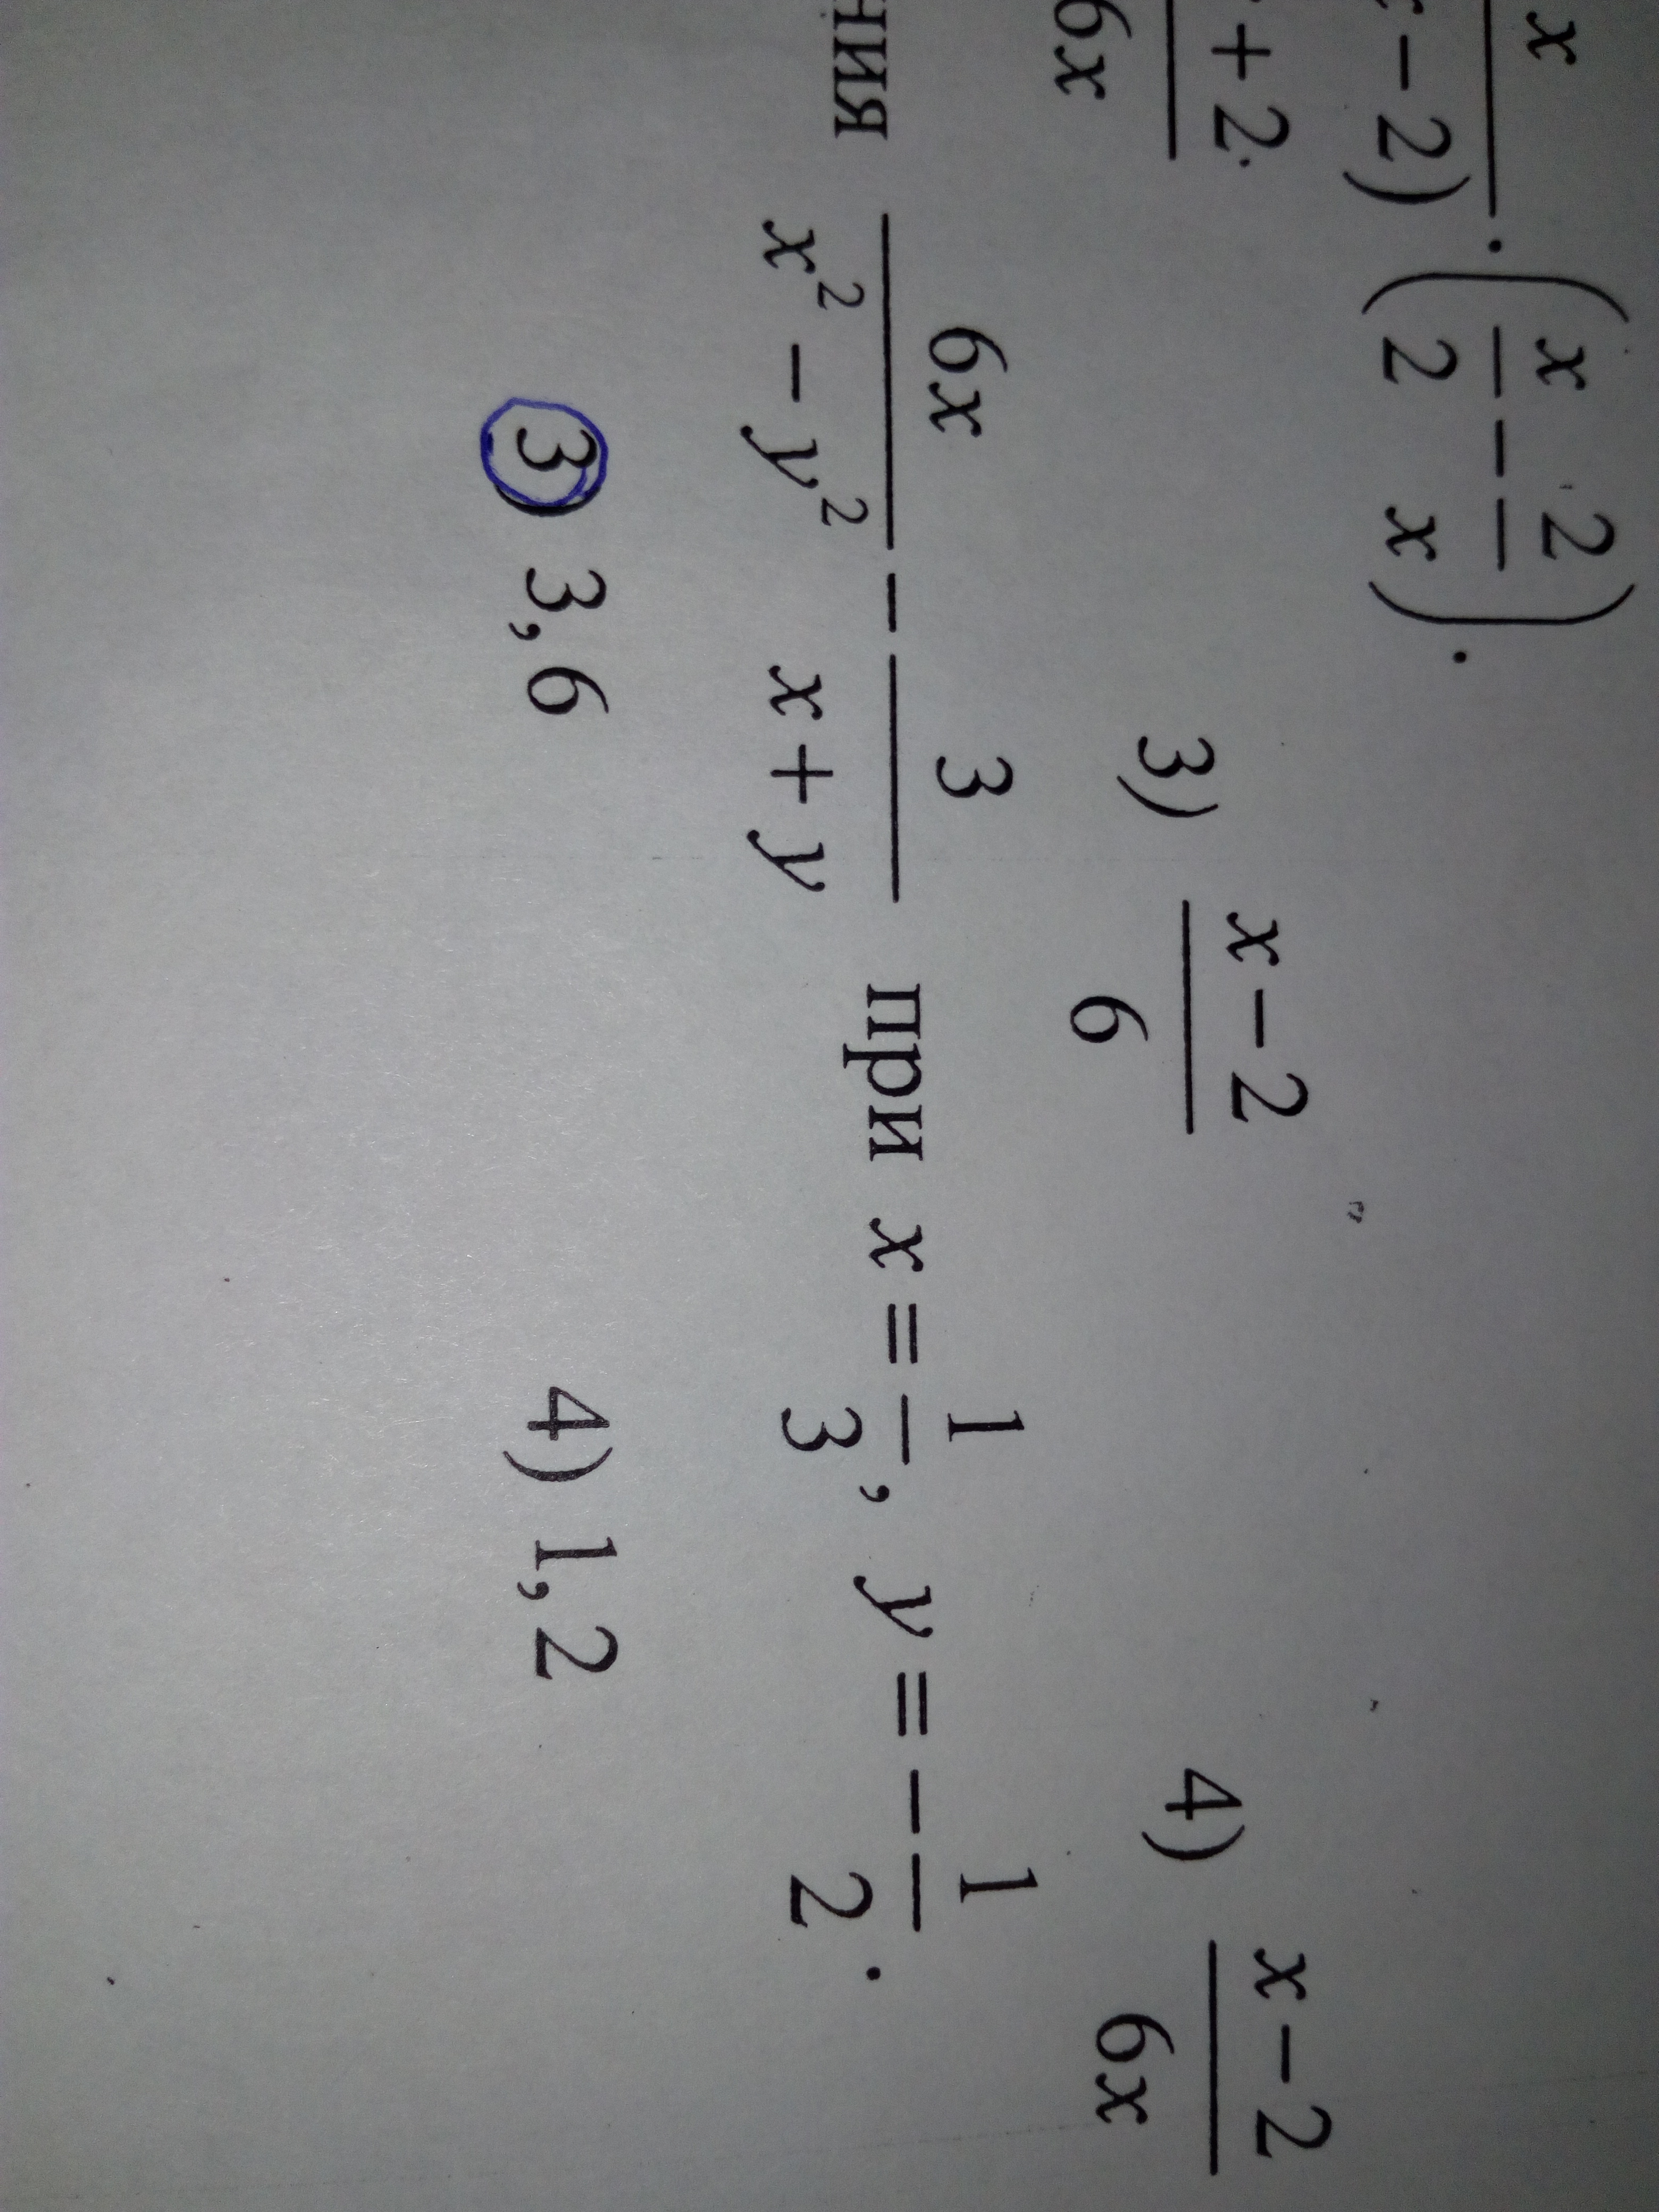 x / x − 2) · (x/2 − 2/x).
+ 2 / 6x 3) (x − 2)/6 4) (x − 2)/6x
ния 6x/(x² − y²) − 3/(x + y) при x = 1/3, y = −1/2.
3) 3,6 4) 1,2